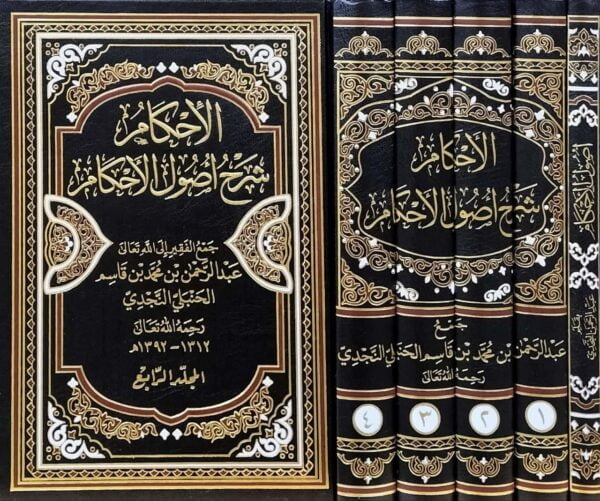 الإحكام
شرح أصول الأحكام
جمع الفقير إلى الله تعالى
عبد الرحمن بن محمد بن قاسم
الحنبلي النجدي
رحمه الله تعالى
١٣١٢ - ١٣٩٢ هـ
المجلد الرابع
الإحكام
شرح أصول الأحكام
جمع
عبد الرحمن بن محمد بن قاسم الحنبلي النجدي
رحمه الله تعالى
٤ ٣ ٢ ١
أصول الأحكام